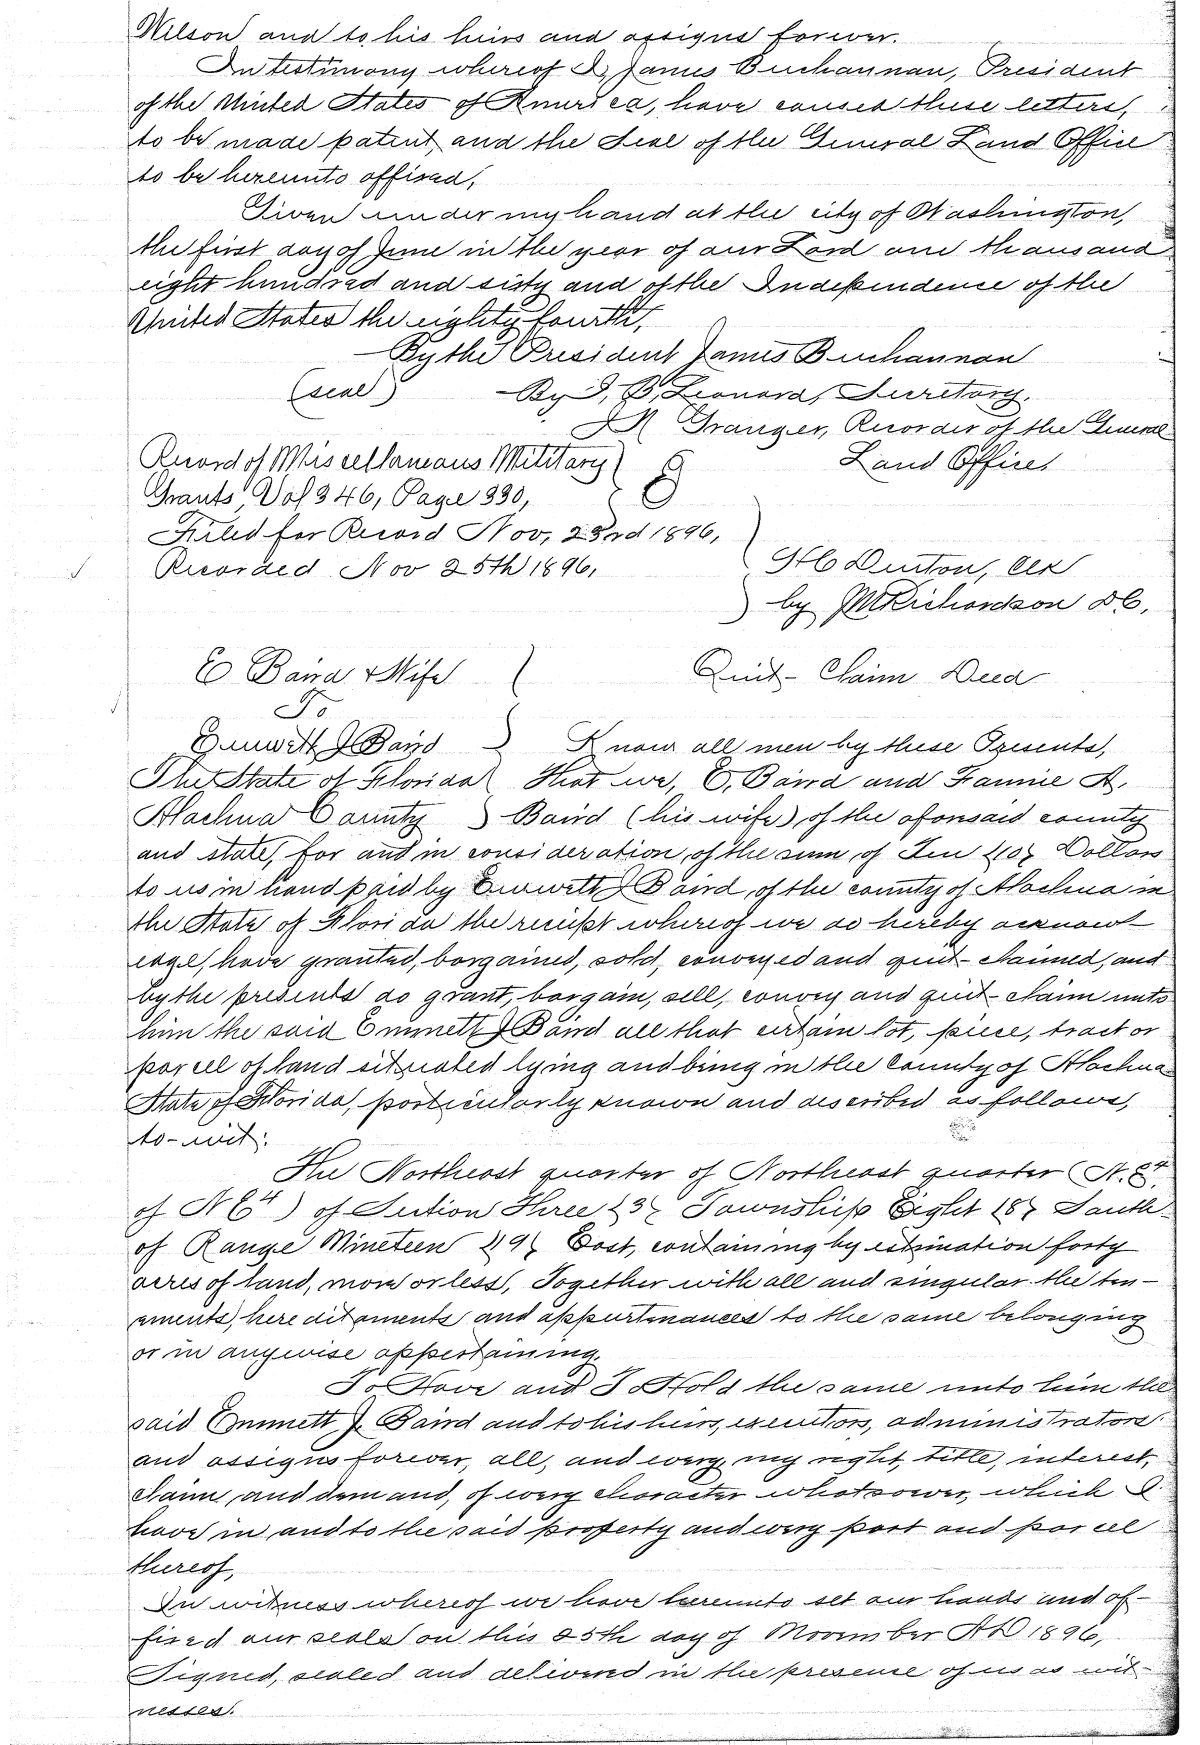 Wilson and to his heirs and assigns forever.
In testimony whereof I, James Buchannan, President
of the United States of America, have caused these letters,
to be made patent, and the Seal of the General Land Office
to be hereunto affixed,
Given under my hand at the city of Washington,
the first day of June in the year of our Lord one thousand
eight hundred and sixty and of the Independence of the
United States the eighty fourth,
By the President James Buchannan
(seal) By J, B, Leonard, Secretary.
Granger, Recorder of the General
Land Office,
Record of Miscellaneous Military
Grants, Vol 346, Page 330,
Filed for Record Nov, 23rd 1896,
Recorded Nov 25th 1896,
H C Denton, Clk
by JM Richardson D C,
E Baird & Wife Quit-Claim Deed
To
Emmett J Baird Know all men by these Presents,
The State of Florida That we, E, Baird and Fannie A,
Alachua County Baird (his wife) of the aforesaid county
and state, for and in consideration, of the sum of Ten (10) Dollars
to us in hand paid by Emmett J Baird, of the county of Alachua in
the State of Florida the receipt whereof we do hereby acknowl
edge, have granted, bargained, sold, conveyed and quit-claimed, and
by the presents do grant, bargain, sell, convey and quit-claim unto
him the said Emmett J Baird all that certain lot, piece, tract or
parcel of land situated lying and being in the County of Alachua
State of Florida, particularly known and described as follows,
to-wit:
The Northeast quarter of Northeast quarter (N.E4
of N E4) of Section Three (3) Township Eight (8) South
of Range Nineteen (19) East, containing by estimation forty
acres of land, more or less, Together with all and singular the ten-
ements, hereditaments and appurtenances to the same belonging
or in anywise appertaining.
To Have and To Hold the same unto him the
said Emmett J. Baird and to his heirs, executors, administrators
and assigns forever, all, and every, my right, title, interest,
claim, and demand, of every character whatsoever, which I
have in and to the said property and every part and parcel
thereof,
In witness whereof we have hereunto set our hands and af-
fixed our seals on this 25th day of November AD 1896,
Signed, sealed and delivered in the presence of us as wit-
nesses.